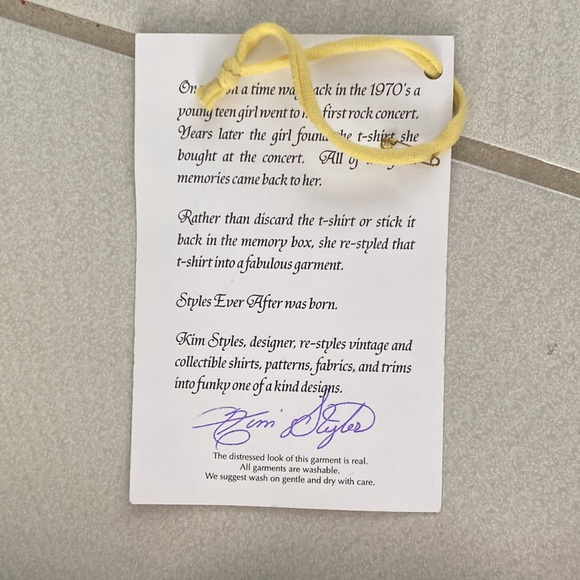 a time back in the 1970's a
young teen girl went to first rock concert.
Years later the girl found the t-shirt she
bought at the concert. All of
memories came back to her.
Rather than discard the t-shirt or stick it
back in the memory box, she re-styled that
t-shirt into a fabulous garment.
Styles Ever After was born.
Kim Styles, designer, re-styles vintage and
collectible shirts, patterns, fabrics, and trims
into funky one of a kind designs.
Kim Styles
The distressed look of this garment is real.
All garments are washable.
We suggest wash on gentle and dry with care.